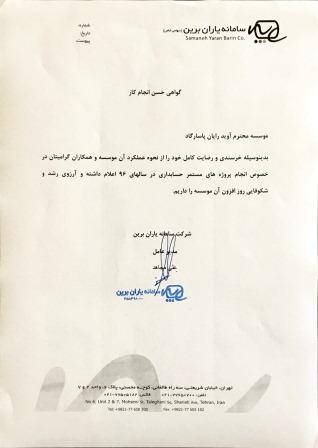 سامانه یاران برین (سهامی خاص)
Samaneh Yaran Barin Co.
شماره:
تاریخ:
پیوست:
گواهی حسن انجام کار
موسسه محترم آوید رایان پاسارگاد
بدینوسیله خرسندی و رضایت کامل خود را از نحوه عملکرد آن موسسه و همکاران گرامیتان در
خصوص انجام پروژه های مستمر حسابداری در سالهای ۹۶ اعلام داشته و آرزوی رشد و
شکوفایی روز افزون آن موسسه را داریم.
شرکت سامانه یاران برین
مدیر عامل
سامانه یاران برین
تهران، خیابان شریعتی، سه راه طالقانی، کوچه محسنی، پلاک ۶، واحد ۲ و ۷
No 6, Unit 2 & 7, Mohseni St, Taleghani Sq, Shariati Ave, Tehran, Iran